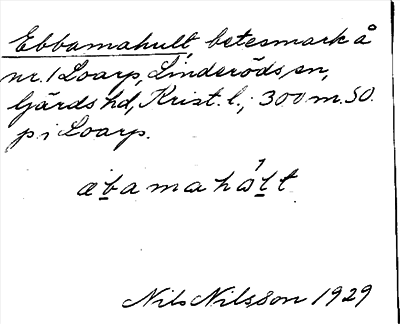 Ebbamahult, betesmark å
nr. 1 Loarp, Linderöds sn,
Gärds hd, Krist. l.; 300 m. SO.
p i Loarp.
æbamahȯlt
Nils Nilsson 1929